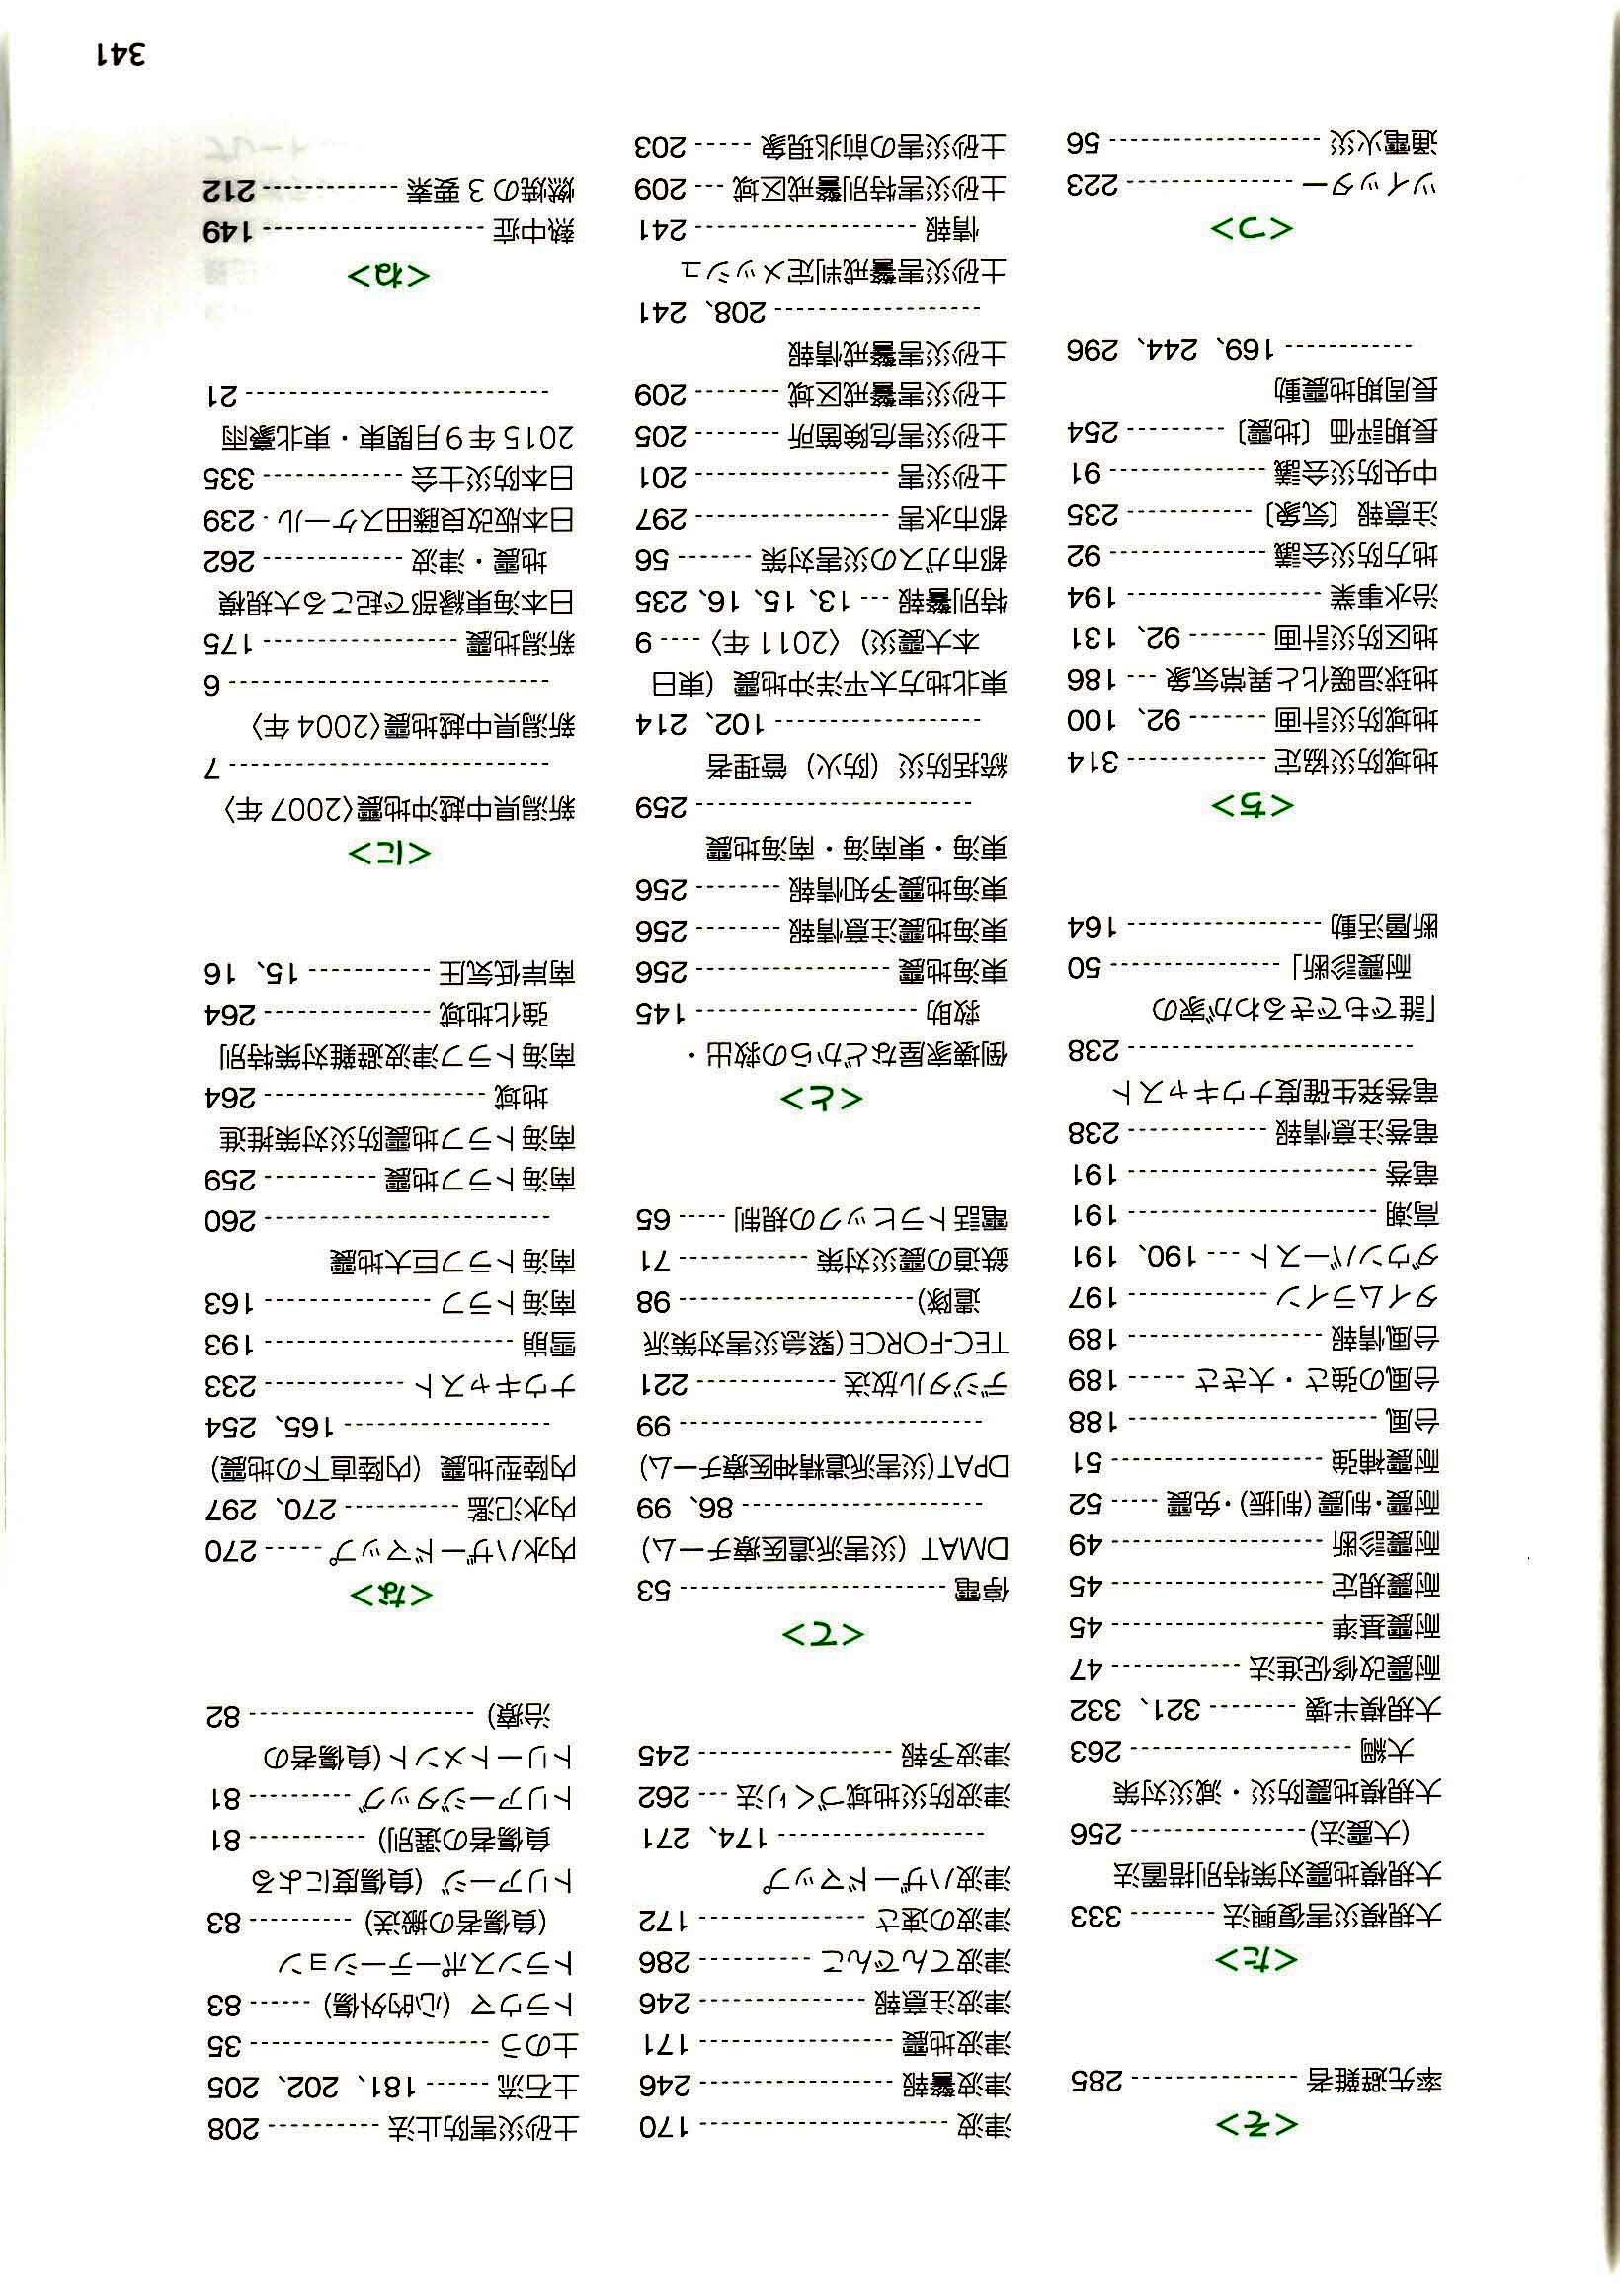 <そ>
率先避難者 --------------- 285
<た>
大規模災害復興法 -------- 333
大規模地震対策特別措置法
(大震法) ---------------- 256
大規模地震防災・減災対策
大綱 -------------------- 263
大規模半壊 -------- 321、332
耐震改修促進法 ------------ 47
耐震基準 ------------------- 45
耐震規定 ------------------- 45
耐震診断 ------------------- 49
耐震・制震(制振)・免震 ----- 52
耐震補強 ------------------- 51
台風 ----------------------- 188
台風の強さ・大きさ ----- 189
台風情報 ------------------ 189
タイムライン ------------- 197
ダウンバースト --- 190、191
高潮 ----------------------- 191
竜巻 ----------------------- 191
竜巻注意情報 ------------- 238
竜巻発生確度ナウキャスト
-------------------------- 238
「誰でもできるわが家の
耐震診断」 --------------- 50
断層活動 ------------------ 164
<ち>
地域防災協定 ------------- 314
地域防災計画 ------- 92、100
地球温暖化と異常気象 --- 186
地区防災計画 ------- 92、131
治水事業 ------------------ 194
地方防災会議 -------------- 92
注意報〔気象〕 ------------ 235
中央防災会議 -------------- 91
長期評価〔地震〕 --------- 254
長周期地震動
------------ 169、244、296
<つ>
ツイッター --------------- 223
通電火災 ------------------- 56
津波 ----------------------- 170
津波警報 ------------------ 246
津波地震 ------------------ 171
津波注意報 --------------- 246
津波てんでんこ ---------- 286
津波の速さ --------------- 172
津波ハザードマップ
------------------- 174、271
津波防災地域づくり法 --- 262
津波予報 ------------------ 245
<て>
停電 ------------------------ 53
DMAT(災害派遣医療チーム)
---------------------- 86、99
DPAT(災害派遣精神医療チーム)
---------------------------- 99
デジタル放送 ------------- 221
TEC-FORCE(緊急災害対策派
遣隊) --------------------- 98
鉄道の震災対策 ------------ 71
電話トラヒックの規制 ----- 65
<と>
倒壊家屋などからの救出・
救助 -------------------- 145
東海地震 ------------------ 256
東海地震注意情報 -------- 256
東海地震予知情報 -------- 256
東海・東南海・南海地震
------------------------- 259
統括防災(防火)管理者
------------------- 102、214
東北地方太平洋沖地震(東日
本大震災)〈2011年〉 ---- 9
特別警報 --- 13、15、16、235
都市ガスの災害対策 ------- 56
都市水害 ------------------ 297
土砂災害 ------------------ 201
土砂災害危険箇所 -------- 205
土砂災害警戒区域 -------- 209
土砂災害警戒情報
------------------- 208、241
土砂災害警戒判定メッシュ
情報 -------------------- 241
土砂災害特別警戒区域 --- 209
土砂災害の前兆現象 ----- 203
土砂災害防止法 ---------- 208
土石流 ------ 181、202、205
土のう ---------------------- 35
トラウマ(心的外傷) ------ 83
トランスポーテーション
(負傷者の搬送) ---------- 83
トリアージ(負傷度による
負傷者の選別) ----------- 81
トリアージタッグ ---------- 81
トリートメント(負傷者の
治療) --------------------- 82
<な>
内水ハザードマップ ----- 270
内水氾濫 ----------- 270、297
内陸型地震(内陸直下の地震)
------------------- 165、254
ナウキャスト ------------- 233
雪崩 ----------------------- 193
南海トラフ --------------- 163
南海トラフ巨大地震
-------------------------- 260
南海トラフ地震 ---------- 259
南海トラフ地震防災対策推進
地域 -------------------- 264
南海トラフ津波避難対策特別
強化地域 --------------- 264
南岸低気圧 ----------- 15、16
<に>
新潟県中越沖地震〈2007年〉
----------------------------- 7
新潟県中越地震〈2004年〉
----------------------------- 6
新潟地震 ------------------ 175
日本海東縁部で起こる大規模
地震・津波 ------------- 262
日本版改良藤田スケール - 239
日本防災士会 ------------- 335
2015年9月関東・東北豪雨
---------------------------- 21
<ね>
熱中症 -------------------- 149
燃焼の3要素 ------------- 212
341